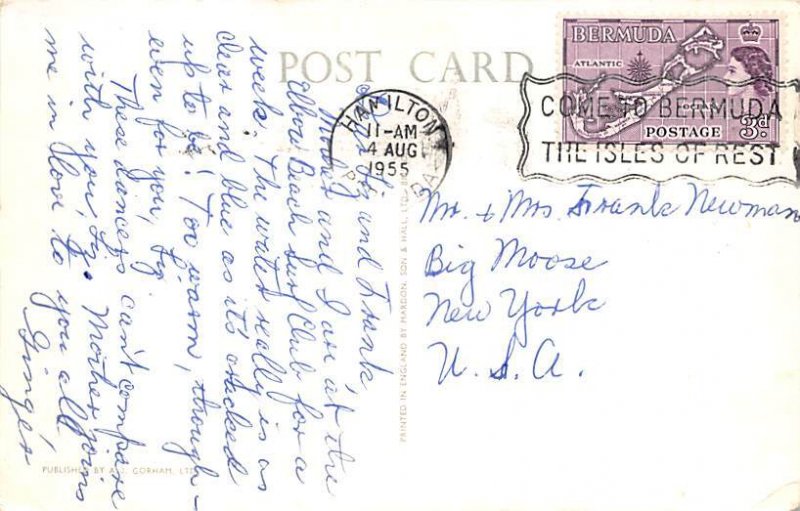 POST CARD
BERMUDA
ATLANTIC
OCEAN
POSTAGE
3d.
HAMILTON
11-AM
4 AUG
1955
COME TO BERMUDA
THE ISLES OF REST
Dear Liz and Frank,
Mother and I are at the
Elbow Beach Surf Club for a
week. The water really is as
clear and blue as it's cracked
up to be! Too warm, though -
even for you, Liz.
These dancers can't compare
with you, Liz. Mother joins
me in love to you all
Ginger
Mr. + Mrs. Frank Newman
Big Moose
New York
U.S.A.
PRINTED IN ENGLAND BY MARDON, SON & HALL, LTD.
PUBLISHED BY A.J. GORHAM, LTD